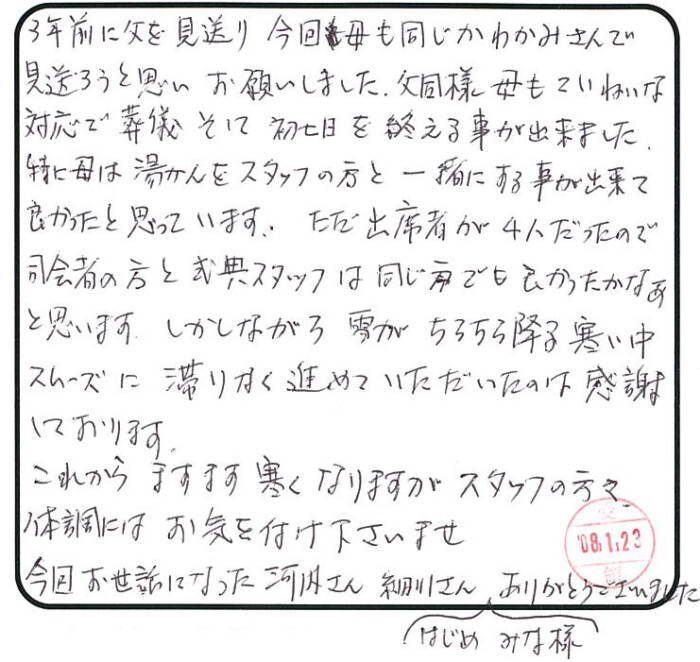 3年前に父を見送り 今回母も同じかわかみさんで
見送ろうと思い お願いしました。父同様 母もていねいな
対応で葬儀 そして 初七日を 終える事が出来ました。
特に母は 湯かんをスタッフの方と 一緒にする事が出来て
良かったと思っています。ただ出席者が 4人だったので
司会者の方と 式典スタッフは同じ方でも良かったかなあ
と思います。しかしながら 雪が ちらちら降る 寒い中
スムーズに 滞りなく 進めていただいたのは 感謝
しております。
これから ますます 寒くなりますが スタッフの方々、
体調には お気を付け下さいませ
今回 お世話になった 河内さん 細川さん、ありがとうございました
はじめ みな様
'08.1.23